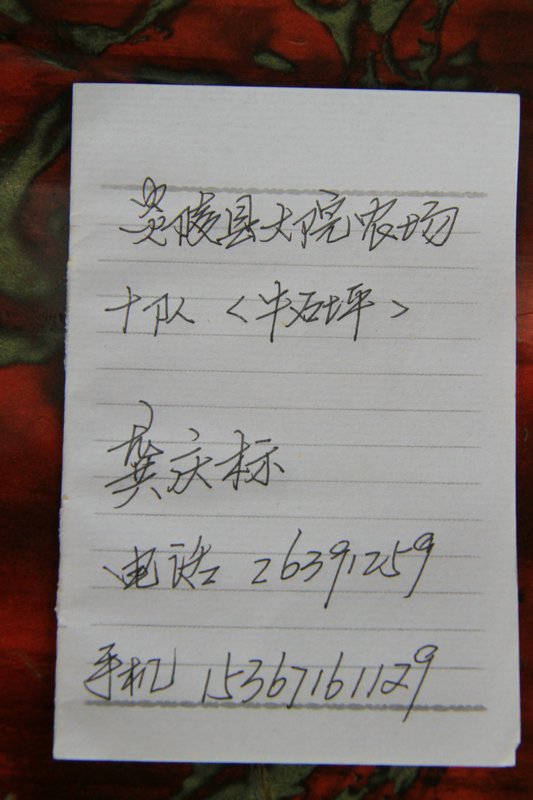 炎陵县大院农场
十队〈牛石坪〉
龚庆标
电话 26391259
手机 15367161129